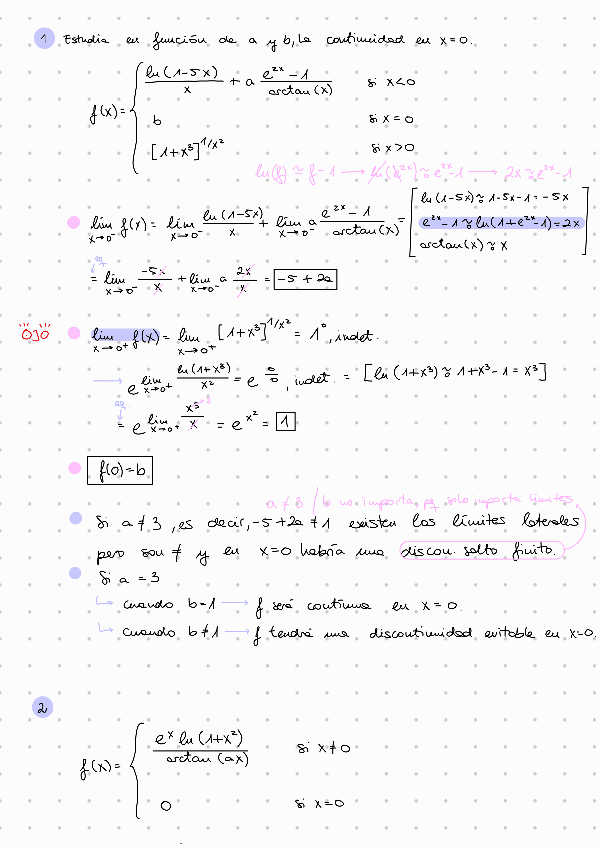 1 Estudia en función de a y b, la continuidad en x=0.
f(x)= { ln(1-5x)/x + a (e^{2x}-1)/arctan(x) si x<0
b si x=0
[1+x³]^{1/x²} si x>0
ln(f) ≈ f-1 → ln(e^{2x}) ≈ e^{2x}-1 → 2x ≈ e^{2x}-1
lim_{x→0⁻} f(x) = lim_{x→0⁻} ln(1-5x)/x + lim_{x→0⁻} a (e^{2x}-1)/arctan(x) = [ ln(1-5x) ≈ 1-5x-1 = -5x
e^{2x}-1 ≈ ln(1+e^{2x}-1) = 2x
arctan(x) ≈ x ]
= lim_{x→0⁻} -5x/x + lim_{x→0⁻} a 2x/x = -5+2a
OJO lim_{x→0⁺} f(x) = lim_{x→0⁺} [1+x³]^{1/x²} = 1^∞, indet.
→ e^{lim_{x→0⁺} ln(1+x³)/x²} = e^{0/0}, indet. = [ln(1+x³) ≈ 1+x³-1 = x³]
= e^{lim_{x→0⁺} x³/x} = e^{x²} = 1
f(0)=b
a≠3 / b no importa pq solo importa límites
Si a≠3, es decir, -5+2a≠1 existen los límites laterales
pero son ≠ y en x=0 habría una discon. salto finito.
Si a=3
↳ cuando b=1 → f será continua en x=0.
↳ cuando b≠1 → f tendrá una discontinuidad evitable en x=0.
2
f(x)= { e^x ln(1+x²)/arctan(ax) si x≠0
0 si x=0